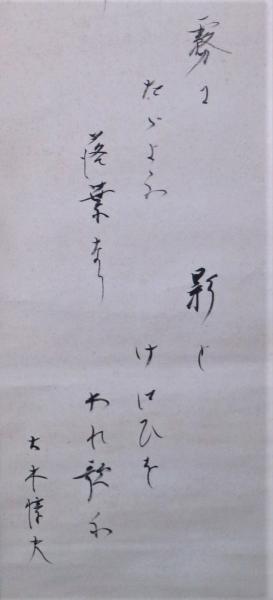 霧に
たゞよふ
落葉なり
影と
けはひを
われ歌ふ
大木惇夫